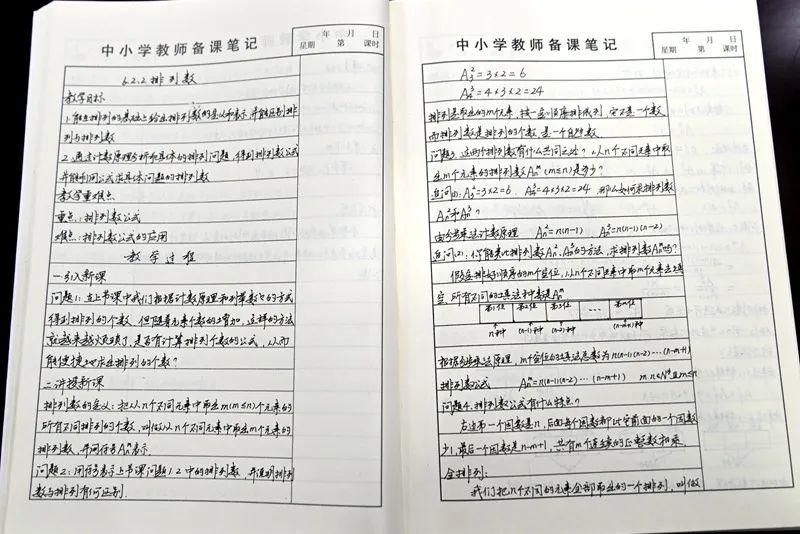 中小学教师备课笔记
年 月 日
星期 第 课时
6.2.2 排列数
教学目标
1.能在排列的基础上给出排列数的定义和表示,并能区别排
列与排列数
2.通过计数原理分析和具体的排列问题,得到排列数公式
并能利用公式求具体问题的排列数
教学重难点
重点:排列数公式
难点:排列数公式的应用
教学过程
一.引入新课
问题1:在上节课中我们根据计数原理和列举数的方式
得到排列的个数,但随着元素个数的增加,这样的方法
就越来越烦琐了,是否有计算排列个数的公式,从而
能便捷地求出排列的个数?
二.讲授新课
排列数的定义:把从n个不同元素中取出m(m≤n)个元素的
所有不同排列的个数,叫做从n个不同元素中取出m个元素的
排列数,并用符号Aₙᵐ表示.
问题2:用符号表示上节课问题1.2中的排列数,并说明排列
数与排列有何区别.
中小学教师备课笔记
年 月 日
星期 第 课时
A₃²=3×2=6
A₄³=4×3×2=24
排列是取出的m个元素,按一定的顺序排成列,它不是一个数
而排列数是排列的个数,是一个自然数.
问题3.这两个排列数有什么共同之处?从n个不同元素中取
出m个元素的排列数Aₙᵐ(m≤n)是多少?
追问(1):A₃²=3×2=6, A₄³=4×3×2=24,那么如何求排列数
Aₙ²和Aₙ³?
由分步乘法计数原理 Aₙ²=n(n-1), Aₙ³=n(n-1)(n-2)
追问(2):你能类比排列数Aₙ²,Aₙ³的方法,求排列数Aₙᵐ吗?
假定有排好顺序的m个空位,从n个不同元素中取m个元素去填
空,所有不同的填法种数是Aₙᵐ
第1位 第2位 第3位 … 第m位
n种 (n-1)种 (n-2)种 (n-m+1)种
根据分步乘法原理,m个空位的填法总数为n(n-1)(n-2)…(n-m+1)
排列数公式 Aₙᵐ=n(n-1)(n-2)…(n-m+1) m.n∈N*且m≤n
问题4.排列数公式有什么特点?
右边第一个因数是n,后面每个因数都比它前面的一个因数
少1,最后一个因数是n-m+1,共有m个连续的正整数相乘.
全排列:
我们把n个不同的元素全部取出的一个排列,叫做